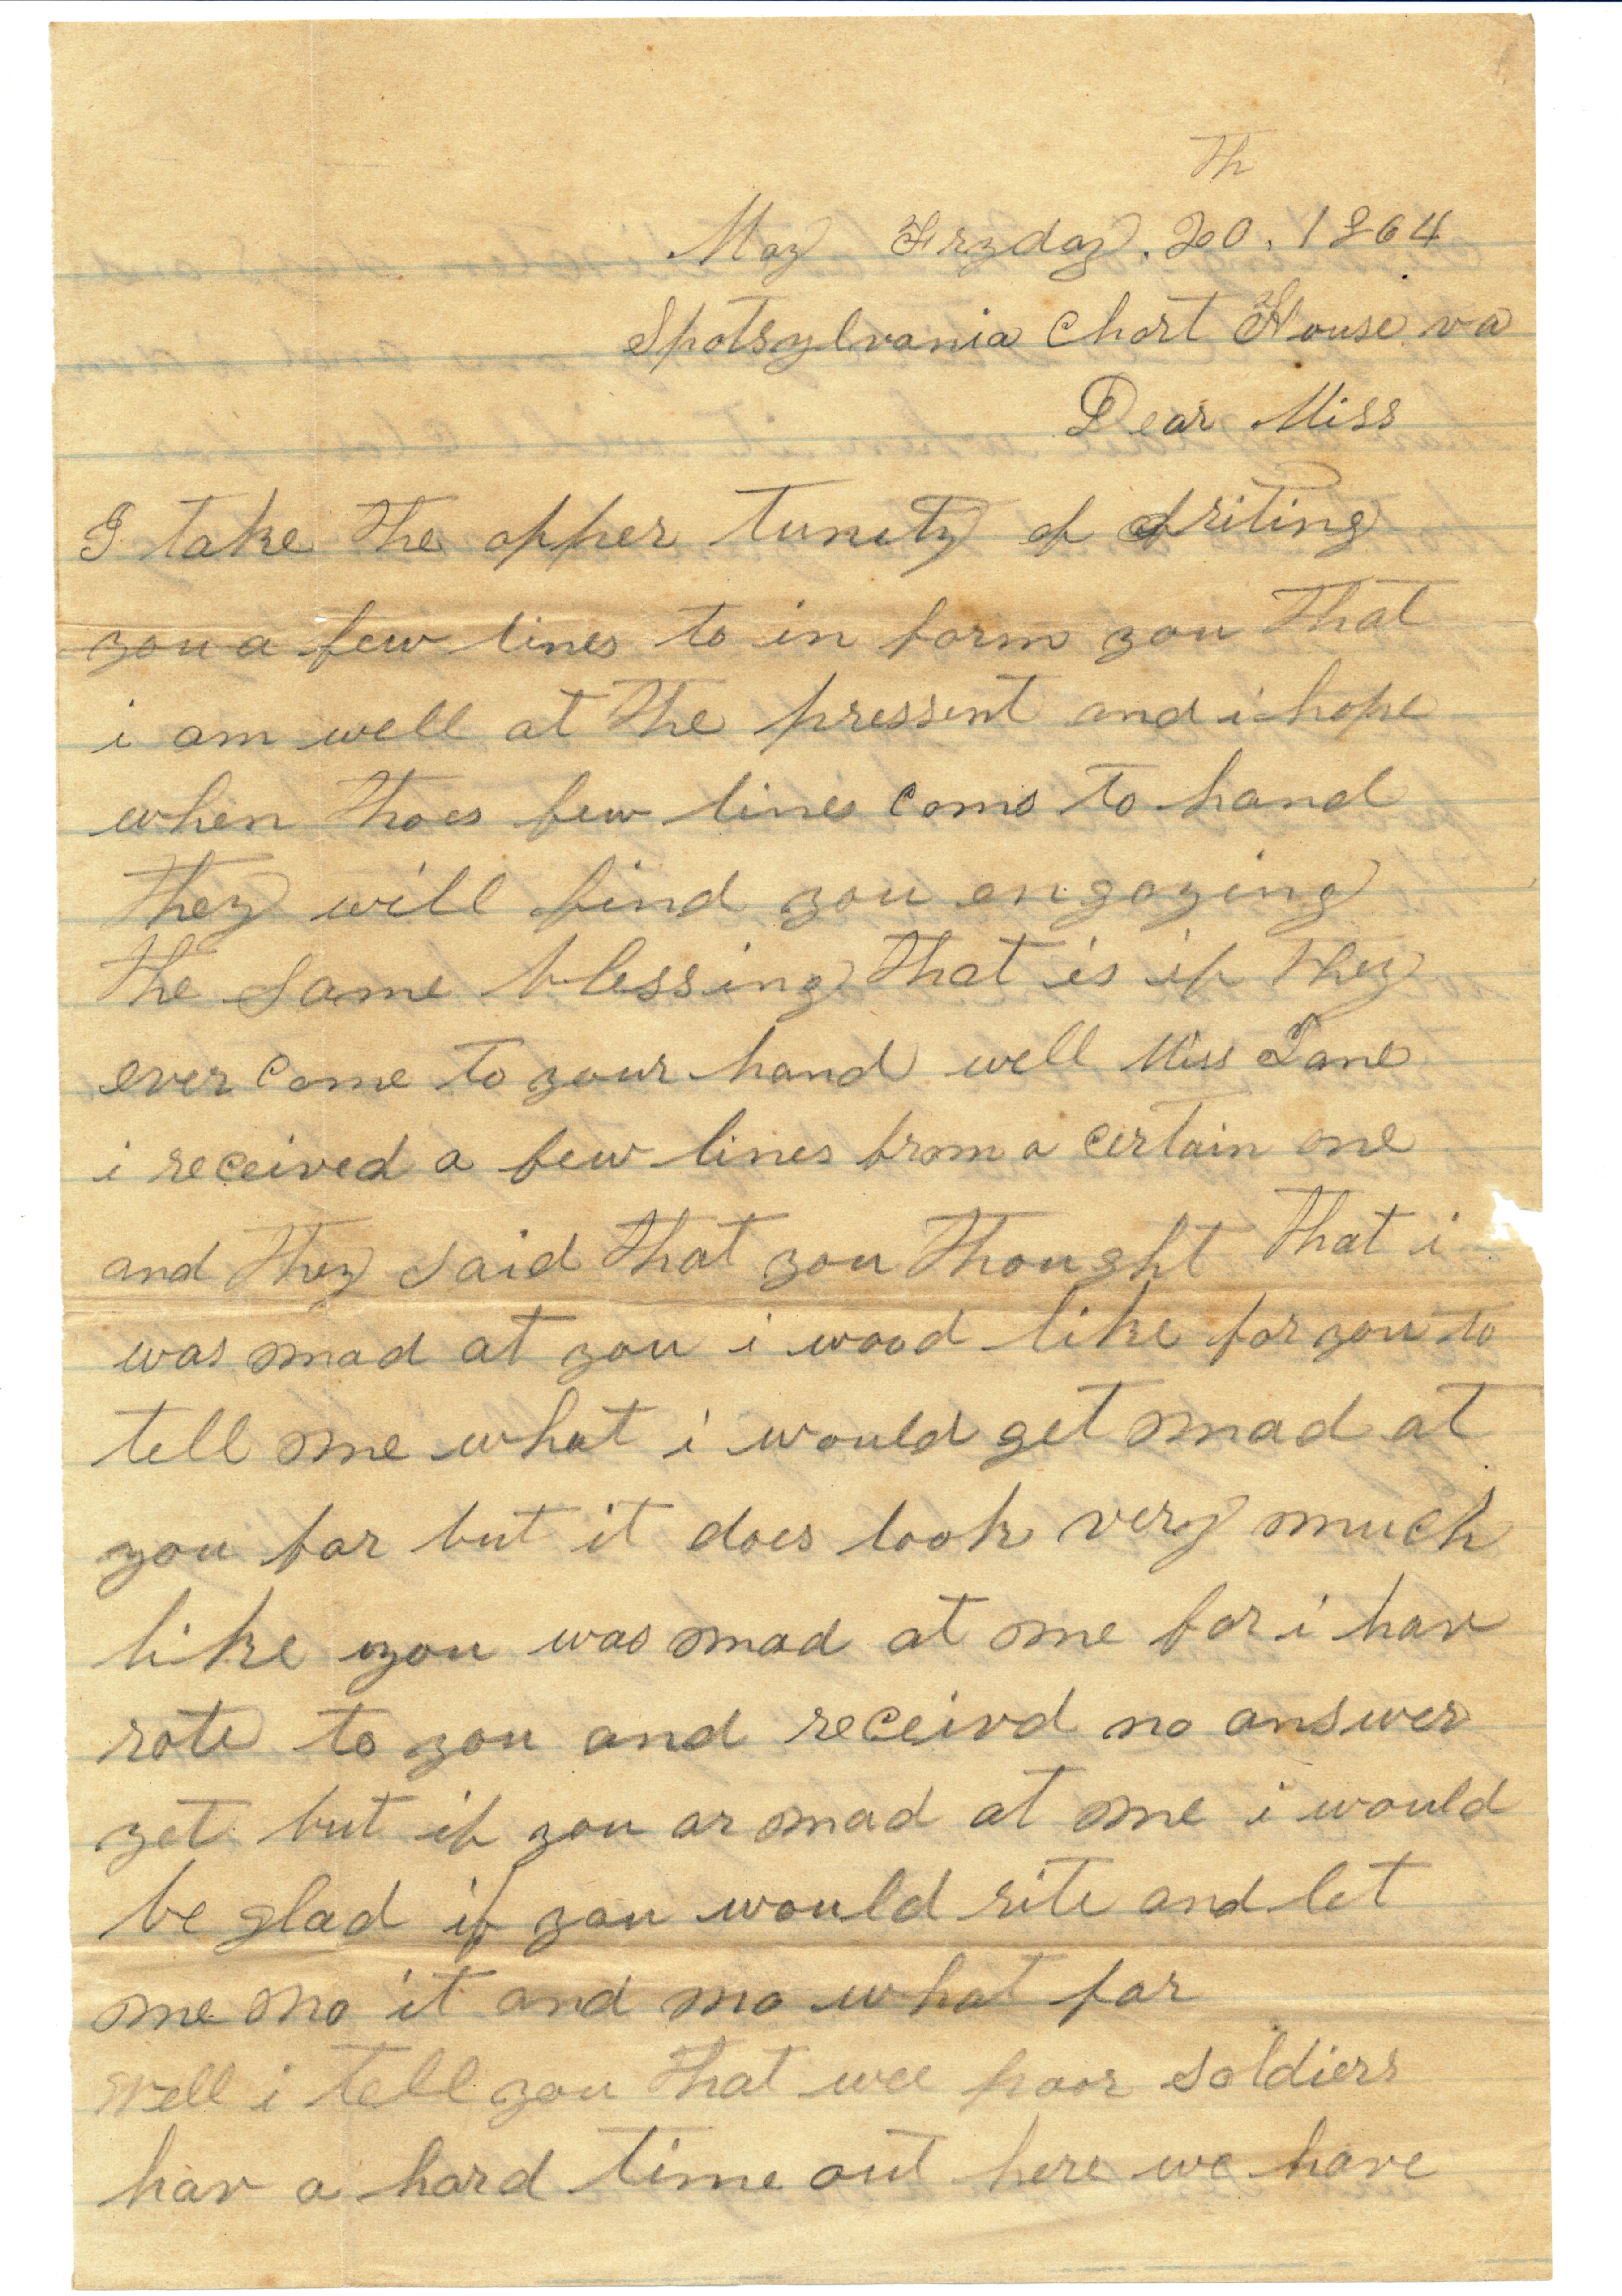 th
May Fryday. 20. 1864
Spotsylvania Chort House va
Dear Miss
I take the opper tunity of writing
you a few lines to in form you that
i am well at the pressent and i hope
when thoes few lines coms to hand
they will find you engoying
the same blessing that is if they
ever come to your hand well Miss Jane
i received a few lines from a certain one
and they said that you thought that i
was mad at you i wood like for you to
tell me what i would get mad at
you for but it does look very much
like you was mad at me for i hav
rote to you and receivd no answer
yet but if you ar mad at me i would
be glad if you would rite and let
me no it and no what for
Well i tell you that wee poor soldiers
hav a hard time out here we have